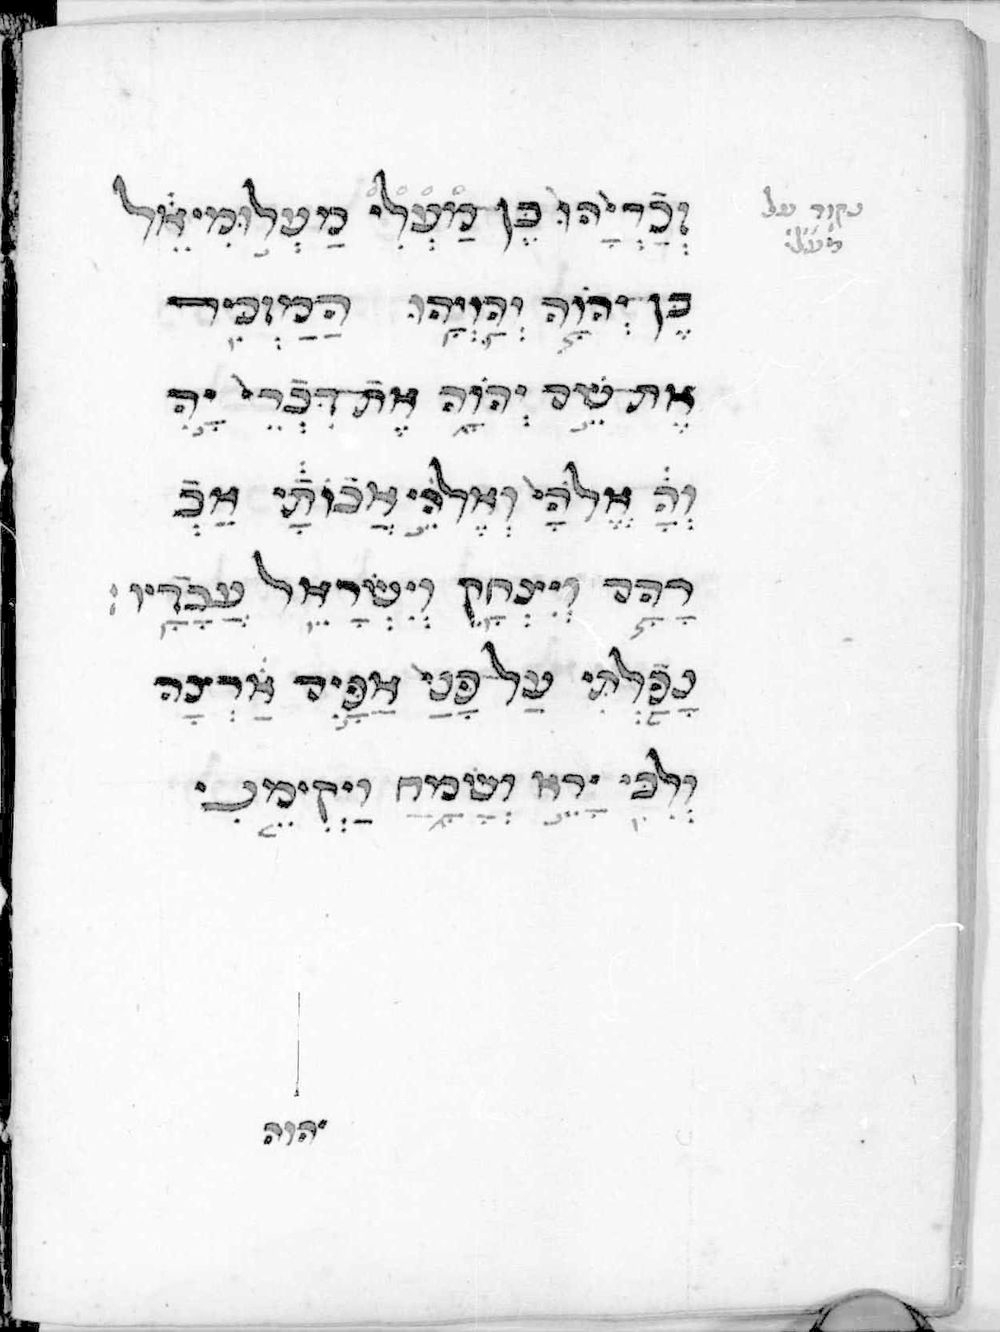 וְכַרְיָהוּ בֶן מַעְלִי מַעְלוּמִיאֵל
נקוד על
מעלי
בֶן יְהֹוָה יְהֲוְיָהוּ הַמַזְכִּיר
אֶת שֵׁם יְהֹוָה אֶת דִּבְרֵי יָהִ
וְהָ אֱלֹהַי וְאֱלֹהֵי אֲבוֹתַי אַבְ
רָהָם וְיִצְחָק וְיִשְׂרָאֵל עֲבָדָיו׃
נָפַלְתִי עַל פָּנַי אַפַּיִם אַרְצָה
וְלִבִּי יָרֵא וְשָׂמַח וַיְקִימֵנִי
יהוה